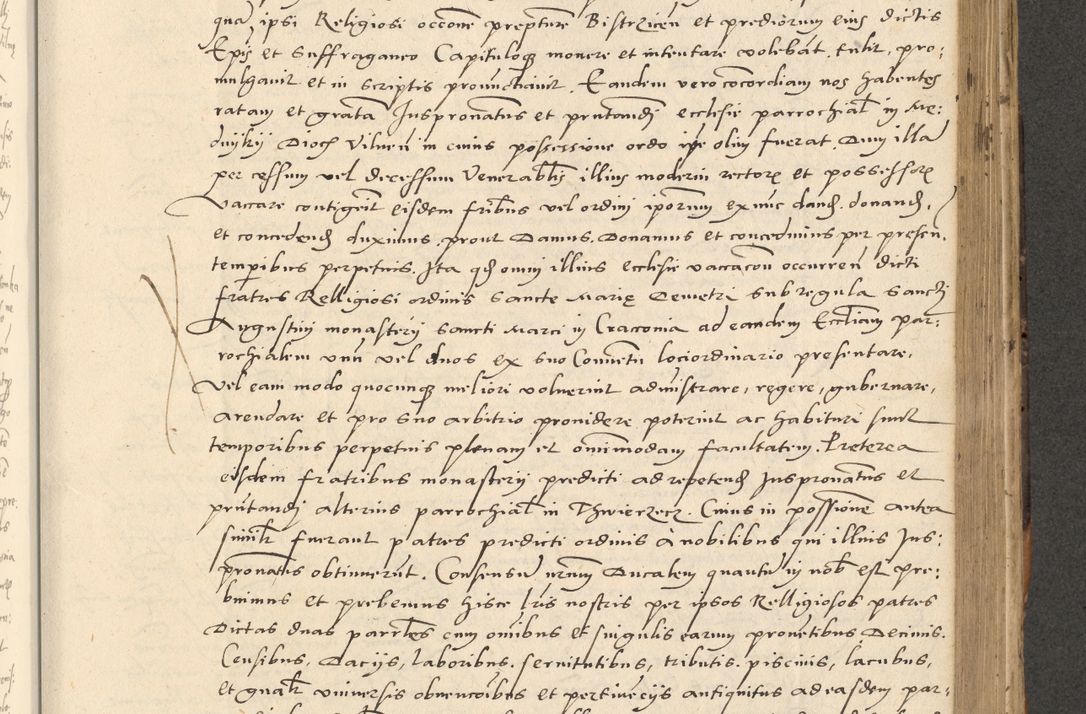 qua ipsi Religiosi occone prepture Bistrzicen et prediorum eius dictis
Epis et Suffraganeo Capituloq monere et intentare volebat. tulit, pro:
mulgavit et in scriptis pronunctiavit. Eandem vero cocordiam nos habentes
ratam et grata Juspronatus et prntandi ecclesie parrochial in Me:
dniky Dioc Vilnen in cuius possessione ordo ipe olim fuerat. Dum illa
per cessum vel decessum Venerablis illius moderni rectore et possessore
vaccare contigerit eisdem fribus vel ordini iporum ex nuc dand. donand,
et concedend duximus, prout Damus. Donamus et concedimus per presen.
temporibus perpetuis. Ita qd omni illius ecclesie vaccaconi occurren dicti
fratres Relligiosi ordinis sancte Marie Demetri sub regula Sancti
Augustini monasterii sancti Marci in Craconia ad eandem Eccliam par:
rochialem unu vel duos ex suo Conuetu lociordinario presentare,
vel eam modo quocunq meliori voluerint administrare, regere, gubernare,
arendare et pro suo arbitrio prouidere poterint ac habituri sunt
temporibus perpetuis plenam et omnimodam facultatem. Preterea
eisdem fratribus monasterii predicti ad repetend Juspronatus et
prntandi alterius parrochial in Thwierzecz. Cuius in possione antea
simili fuerant patres predicti ordinis a nobilibus qui illius Jus:
pronatus obtinuerut. Consensu nrum Ducalem quantu in nob est pre:
buimus et prebemus hisce lris nostris per ipsos Relligiosos patres
Dictas duas parrles cum omibus et singulis earum prouetibus Decimis.
Censibus, Daciis, laboribus. seruitutibus, tributis. piscinis, lacubus,
et gnalr vniuersis obuencoibus et pertinenciis antiquitus ad easdem par-